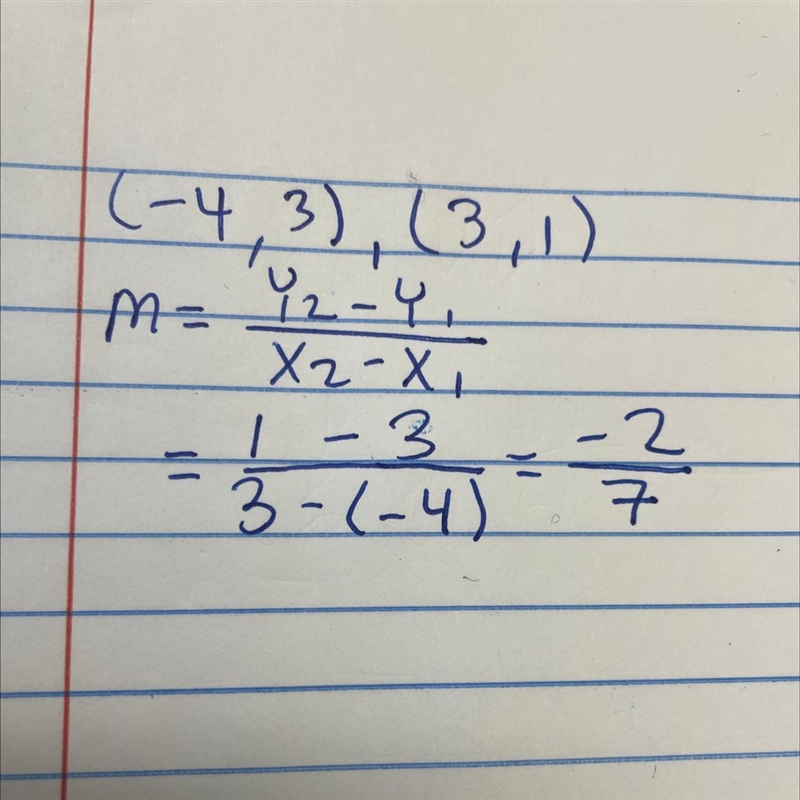 (-4, 3), (3, 1)
m = (Y₂ - Y₁)/(X₂ - X₁)
= (1 - 3)/(3 - (-4)) = -2/7